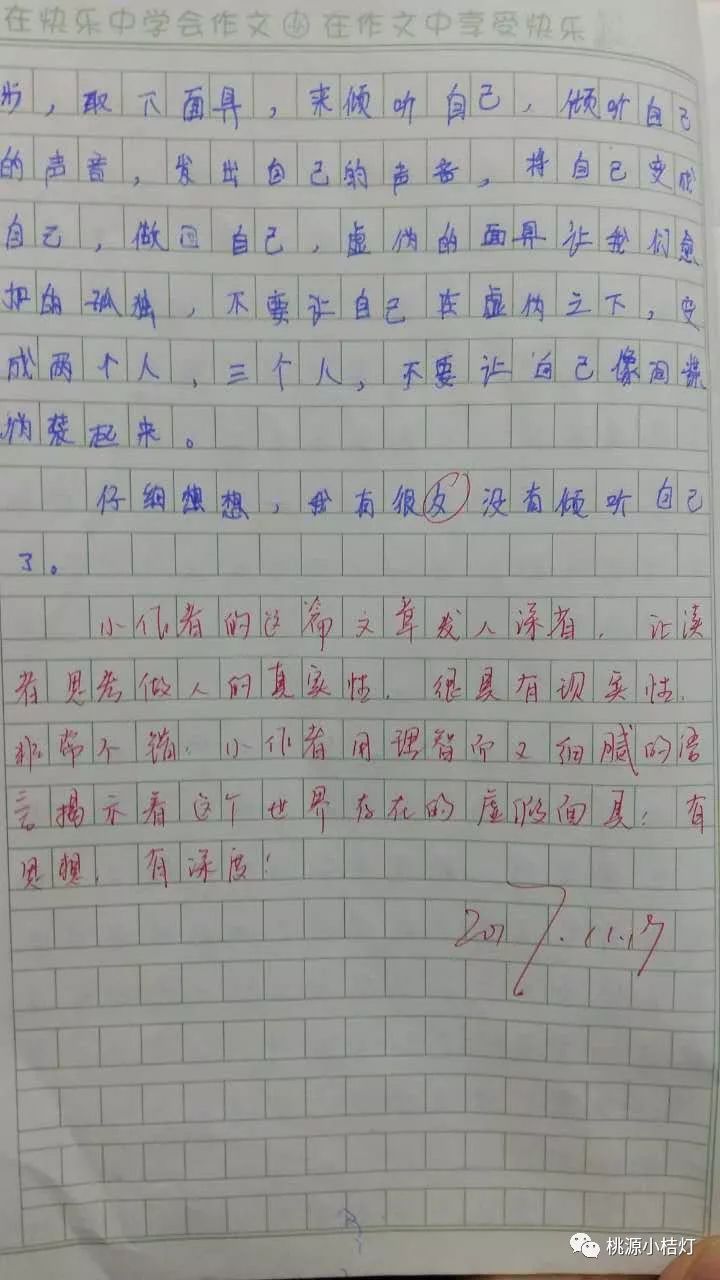 在快乐中学会作文 在作文中享受快乐
步，取下面具，来倾听自己，倾听自己
的声音，发出自己的声音，将自己变成
自己，做回自己，虚伪的面具让我们愈
的孤独，不要让自己在虚伪之下，变
成两个人，三个人，不要让自己像间谍
伪装起来。
仔细想想，我有很久没有倾听自己
了。
小作者的这篇文章发人深省，让读
者思考做人的真实性，很具有现实性，
非常不错，小作者用理智而又细腻的语
言揭示着这个世界存在的虚假面具；有
思想，有深度！
2017.11.17
桃源小桔灯